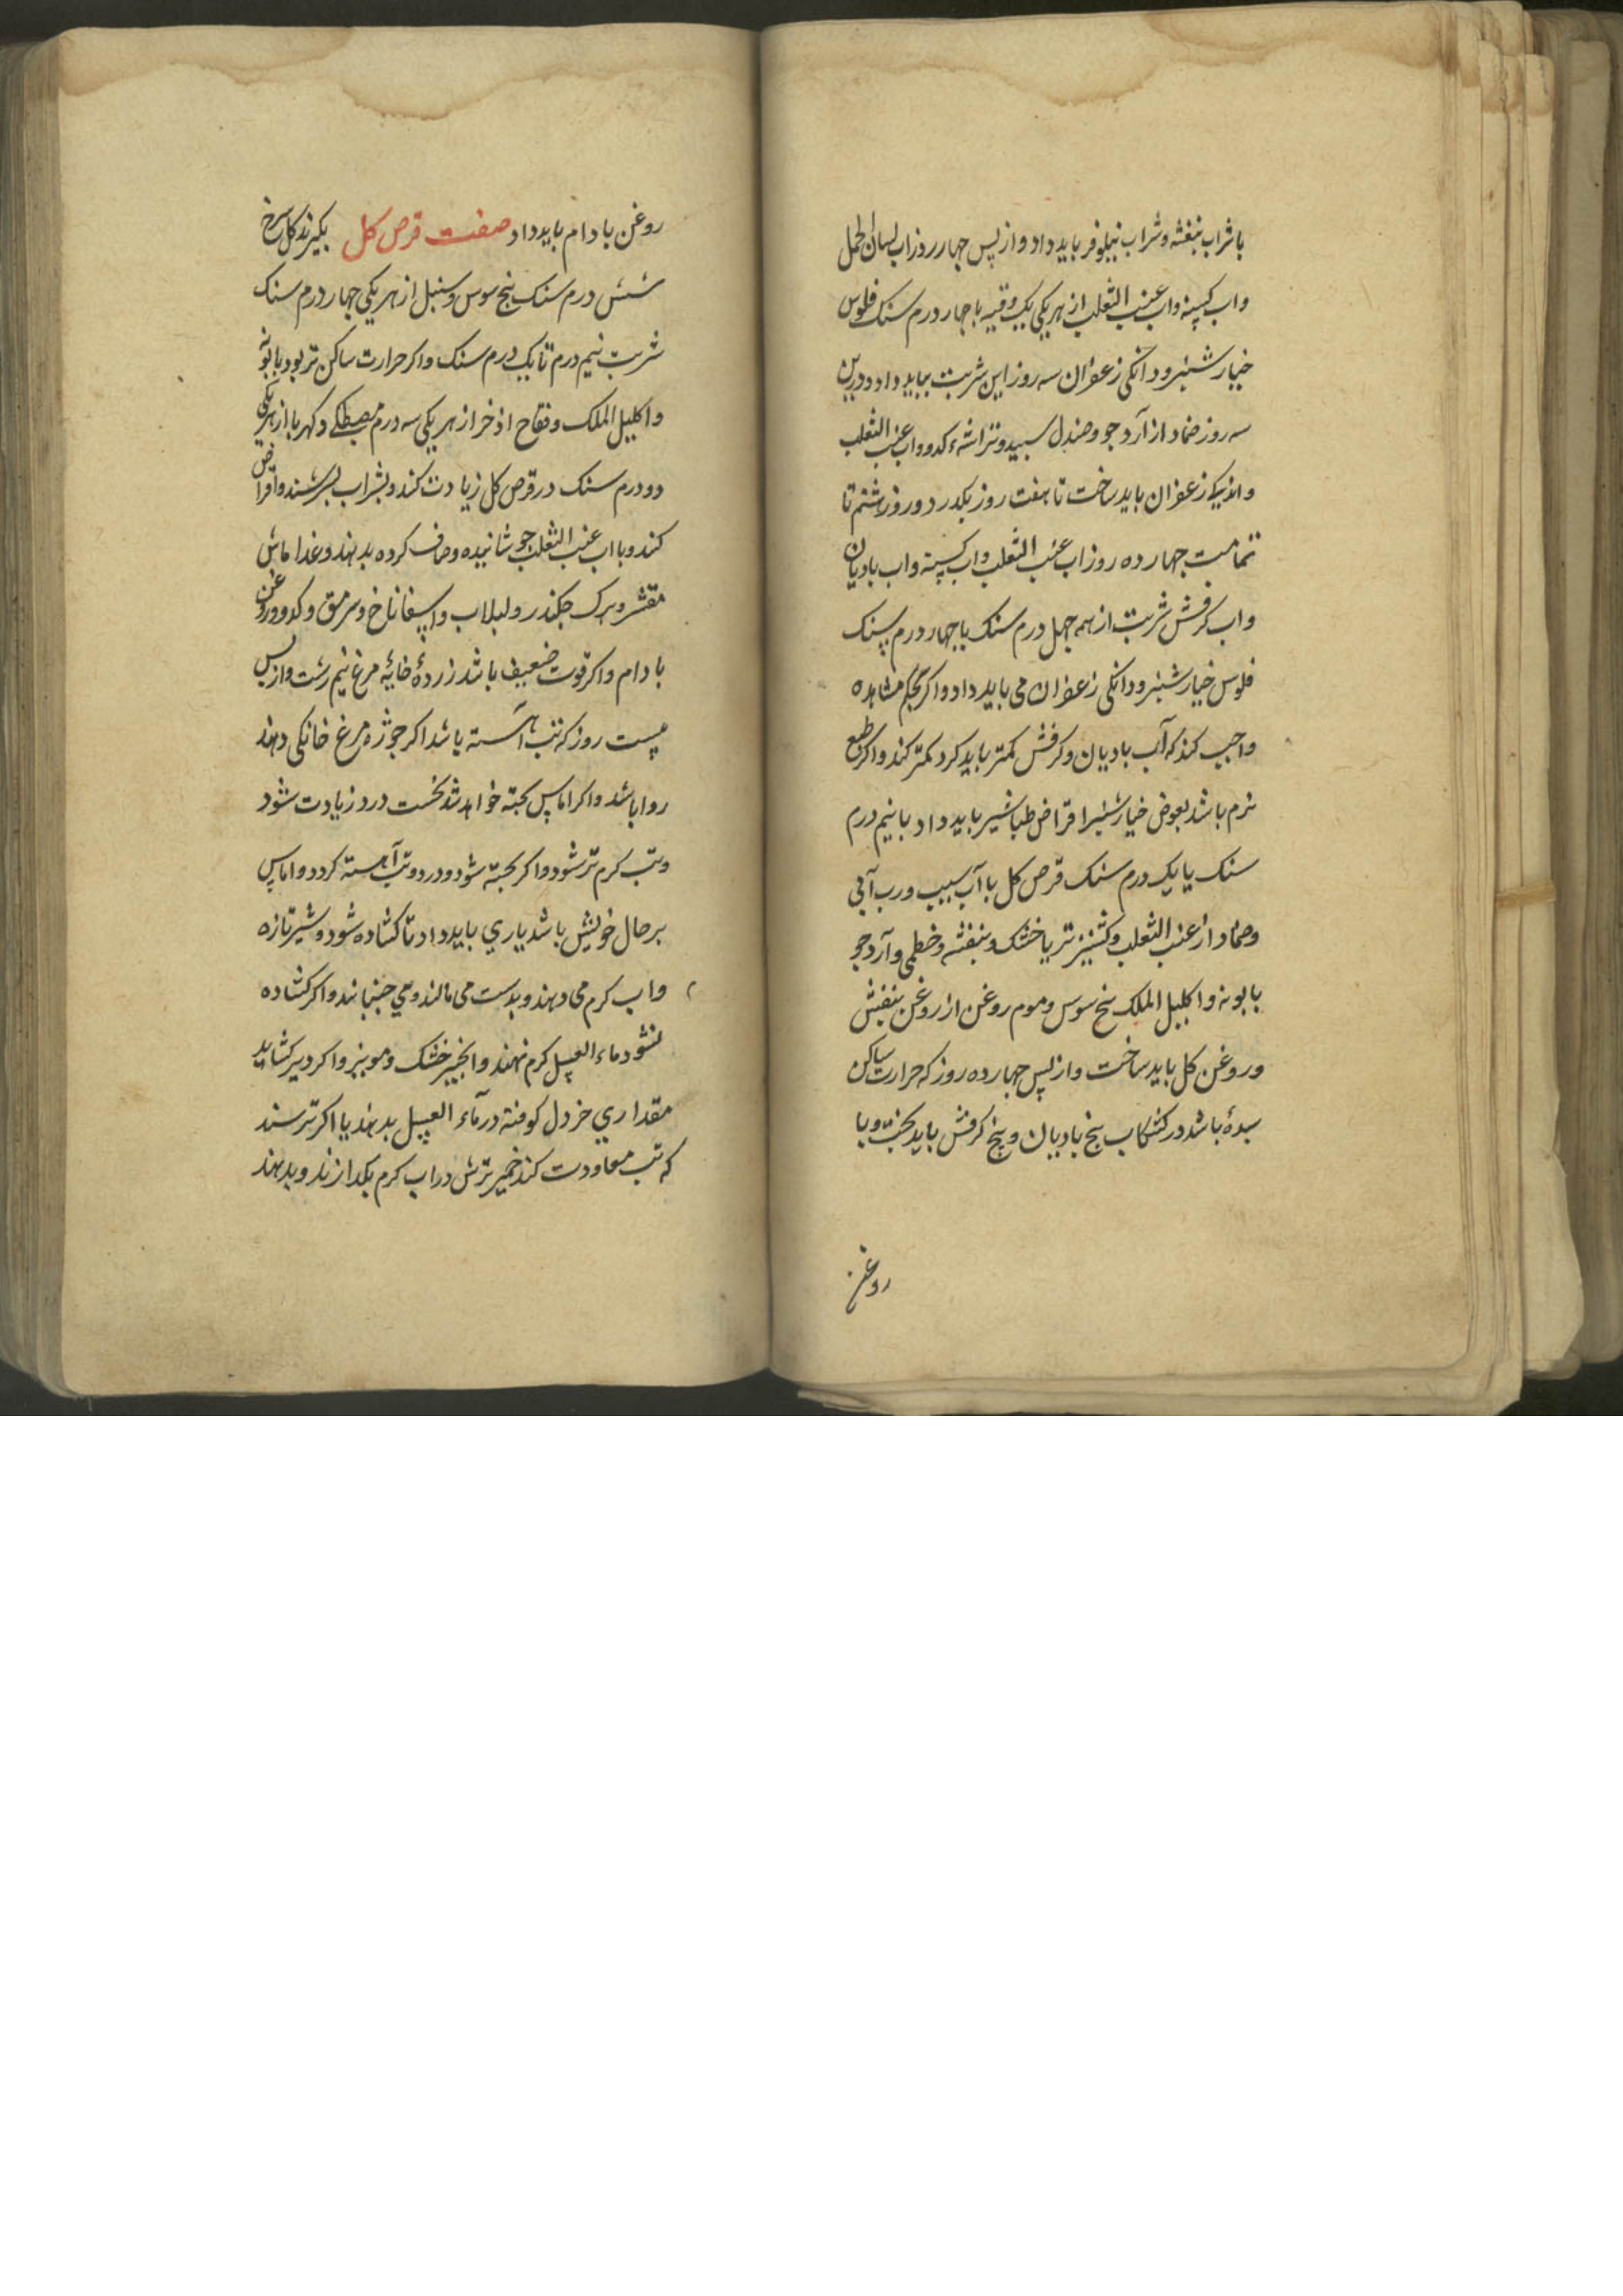 با شراب بنفشه و شراب نیلوفر باید داد و از پس چهار روز اب لسان الحمل
واب کسنه واب عنب الثعلب از هر یکی یک وقیه با چهار درم سنک فلوس
خیار شنبر و دانکی زعفران سه روز این شربت بباید داد و درین
سه روز ضماد از آرد جو و صندل سپید و تراشهٔ کدو واب عنب الثعلب
واندیکی زعفران باید ساخت تا هفت روز بکذرد و روز هشتم تا
تمامت چهارده روز اب عنب الثعلب واب کسنه واب بادیان
واب کرفش شربت از همه چهل درم سنک با چهار درم سنک
فلوس خیار شنبر و دانکی زعفران می باید داد و اکر بحکم مشاهده
واجب کند که آب بادیان و کرفش کمتر باید کرد کمتر کند و اکر طبع
نرم باشد بعوض خیار شنبر اقراض طباشیر باید داد با نیم درم
سنک یا یک درم سنک قرص کل با آب سیب و رب آبی
وضماد از عنب الثعلب و کشنیز تر یا خشک و بنفشه و خطمی و آرد جو
بابونه واکلیل الملک بیخ سوس و موم روغن از روغن بنفش
و روغن کل باید ساخت و از پس چهارده روز که حرارت ساکن
سدهٔ باشد در کشکاب بیخ بادیان و بیخ کرفش باید پخت و با
روغن
روغن بادام باید داد صفت قرص کل بکیرند کل سرخ
شش درم سنک بیخ سوس و سنبل از هر یکی چهار درم سنک
شربت نیم درم تا یک درم سنک و اکر حرارت ساکن تر بود بابونه
واکلیل الملک و فقاح اذخر از هر یکی سه درم مصطکی و کهربا از هر یکی
دو درم سنک در قرص کل زیادت کند و بشراب بسرشند و اقراض
کند و با اب عنب الثعلب جوشانیده و صاف کرده بدهند و غذا ماش
مقشر و برک چکندر و لبلاب و اسپفاناخ و سرمق و کدو و روغن
بادام و اکر قوت ضعیف باشد زردهٔ خایهٔ مرغ نیم رشت و از پس
بیست روز که تب آهسته باشد اکر جوژهٔ مرغ خانکی دهند
روا باشد و اکر اماس پخته خواهد شد نخست درد زیادت شود
و تب کرم تر شود و اکر پخته شود و درد و تب آهسته کردد و اماس
بر حال خویش باشد یاری باید داد تا کشاده شود و شیر تازه
واب کرم می دهند و بدست می مالند و می جنبانند و اکر کشاده
نشود ماء العسل کرم نهند و انجیر خشک و مویز و اکر دیر کشاید
مقداری خردل کوفته در ماء العسل بدهند یا اکر ترسند
که تب معاودت کند خمیر ترش در اب کرم بکدازند و بدهند